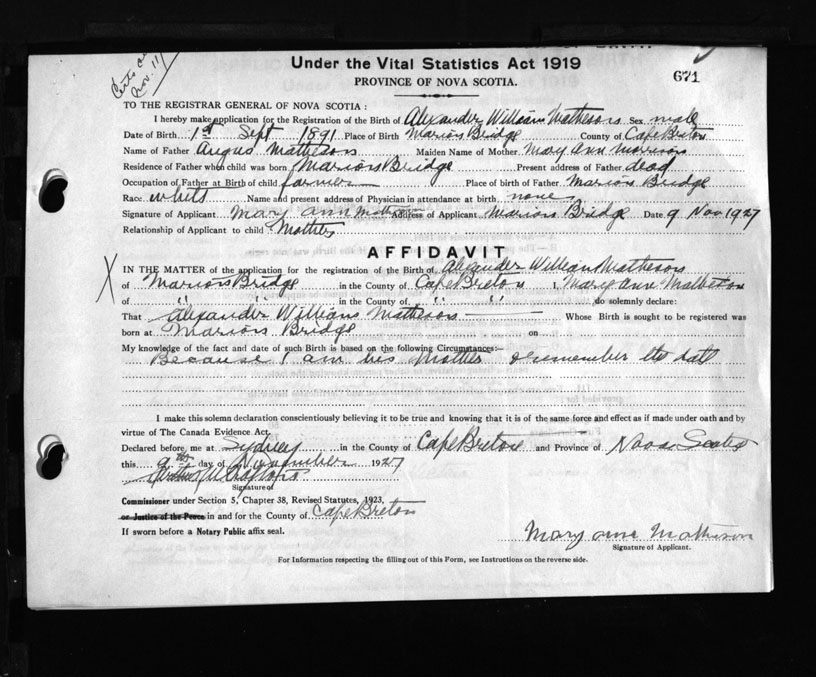 Certs
Nov. 11/
Under the Vital Statistics Act 1919
671
PROVINCE OF NOVA SCOTIA.
TO THE REGISTRAR GENERAL OF NOVA SCOTIA :
I hereby make application for the Registration of the Birth of Alexander William Matheson Sex male
Date of Birth 1st Sept 1891 Place of Birth Marion Bridge County of Cape Breton
Name of Father Angus Matheson Maiden Name of Mother Mary Ann Morrison
Residence of Father when child was born Marion Bridge Present address of Father dead
Occupation of Father at Birth of child farmer Place of birth of Father Marion Bridge
Race white Name and present address of Physician in attendance at birth none
Signature of Applicant Mary ann Matheson Address of Applicant Marion Bridge Date 9 Nov 1927
Relationship of Applicant to child Mother
AFFIDAVIT
IN THE MATTER of the application for the registration of the Birth of Alexander William Matheson
of Marion Bridge in the County of Cape Breton I, Mary Ann Matheson
of " " in the County of " " do solemnly declare:
That Alexander William Matheson Whose Birth is sought to be registered was
born at Marion Bridge on
My knowledge of the fact and date of such Birth is based on the following Circumstances:—
Because I am his Mother & remember the date
I make this solemn declaration conscientiously believing it to be true and knowing that it is of the same force and effect as if made under oath and by
virtue of The Canada Evidence Act.
Declared before me at Sydney in the County of Cape Breton and Province of Nova Scotia
this 9th day of November 1927
Signature of
Commissioner under Section 5, Chapter 38, Revised Statutes, 1923,
or Justice of the Peace in and for the County of Cape Breton
If sworn before a Notary Public affix seal.
Mary ann Matheson
Signature of Applicant.
For Information respecting the filling out of this Form, see Instructions on the reverse side.